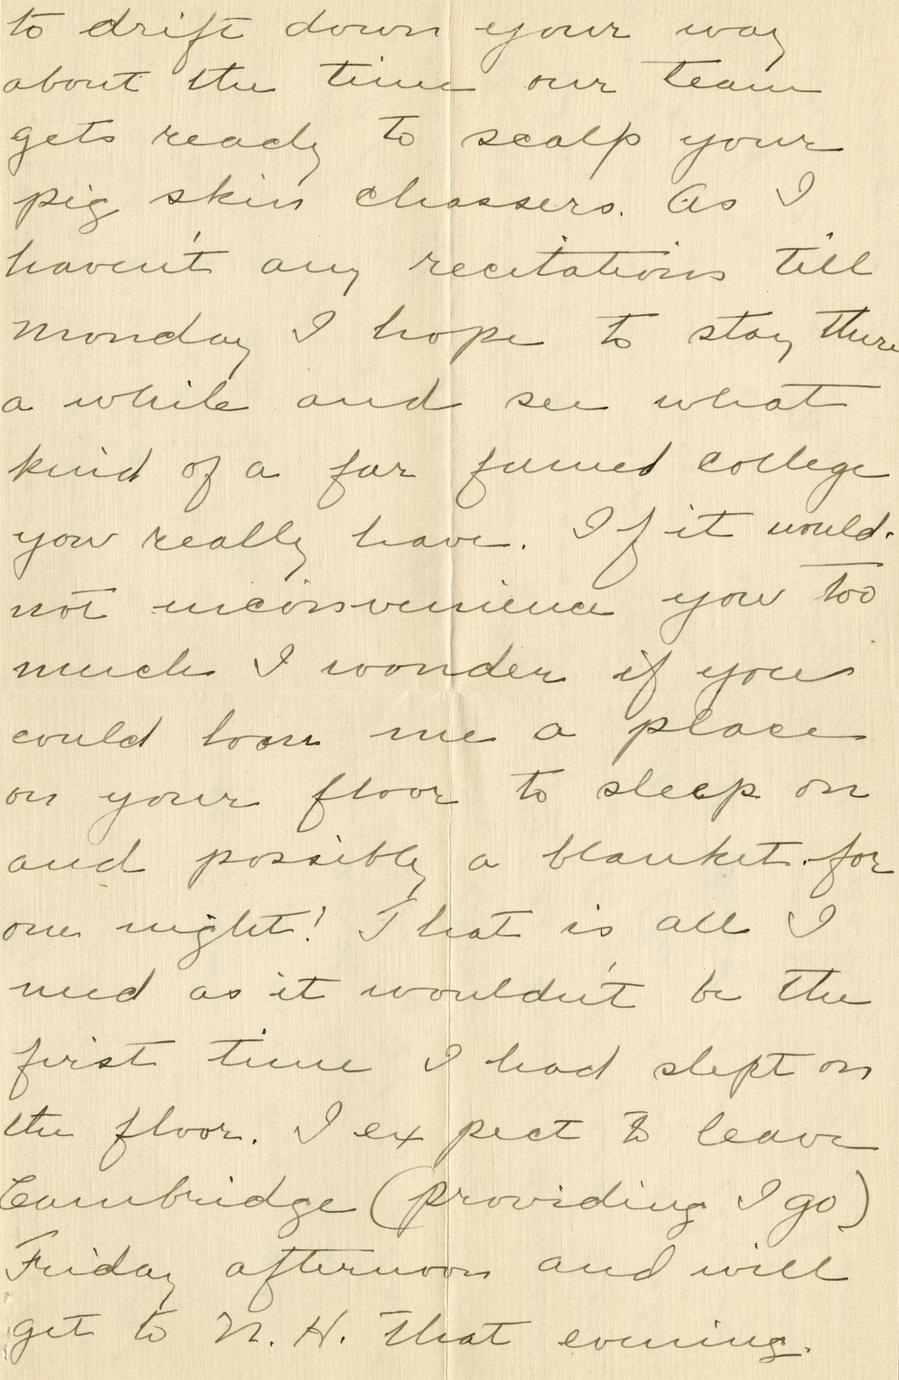 to drift down your way
about the time our team
gets ready to scalp your
pig skin chassers. As I
haven't any recitations till
Monday I hope to stay there
a while and see what
kind of a far famed college
you really have. If it would
not inconvenience you too
much I wonder if you
could loan me a place
on your floor to sleep on
and possibly a blanket for
one night! That is all I
need as it wouldn't be the
first time I had slept on
the floor. I expect to leave
Cambridge (providing I go)
Friday afternoon and will
get to N. H. that evening.